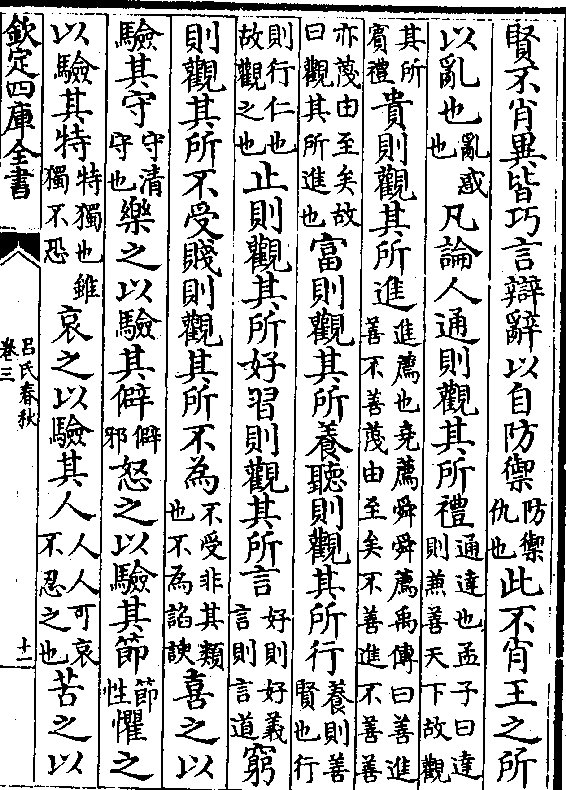 賢不肖異皆巧言辯辭以自防禦防禦仇也此不肖王之所
以亂也亂惑也凡論人通則觀其所禮通達也孟子曰達則兼善天下故觀
其所賔禮貴則觀其所進進薦也堯薦舜舜薦禹傳曰善進善不善蔑由至矣不善進不善善
亦蔑由至矣故曰觀其所進也富則觀其所養聽則觀其所行養則善賢也行
則行仁也故觀之也止則觀其所好習則觀其所言好則好義言則言道窮
則觀其所不受賤則觀其所不為不受非其類也不為諂諛喜之以
驗其守守清守也樂之以驗其僻僻邪怒之以驗其節節性懼之
以驗其特特獨也雖獨不恐哀之以驗其人人人可哀不忍之也苦之以
欽定四庫全書
呂氏春秋
卷三
十二